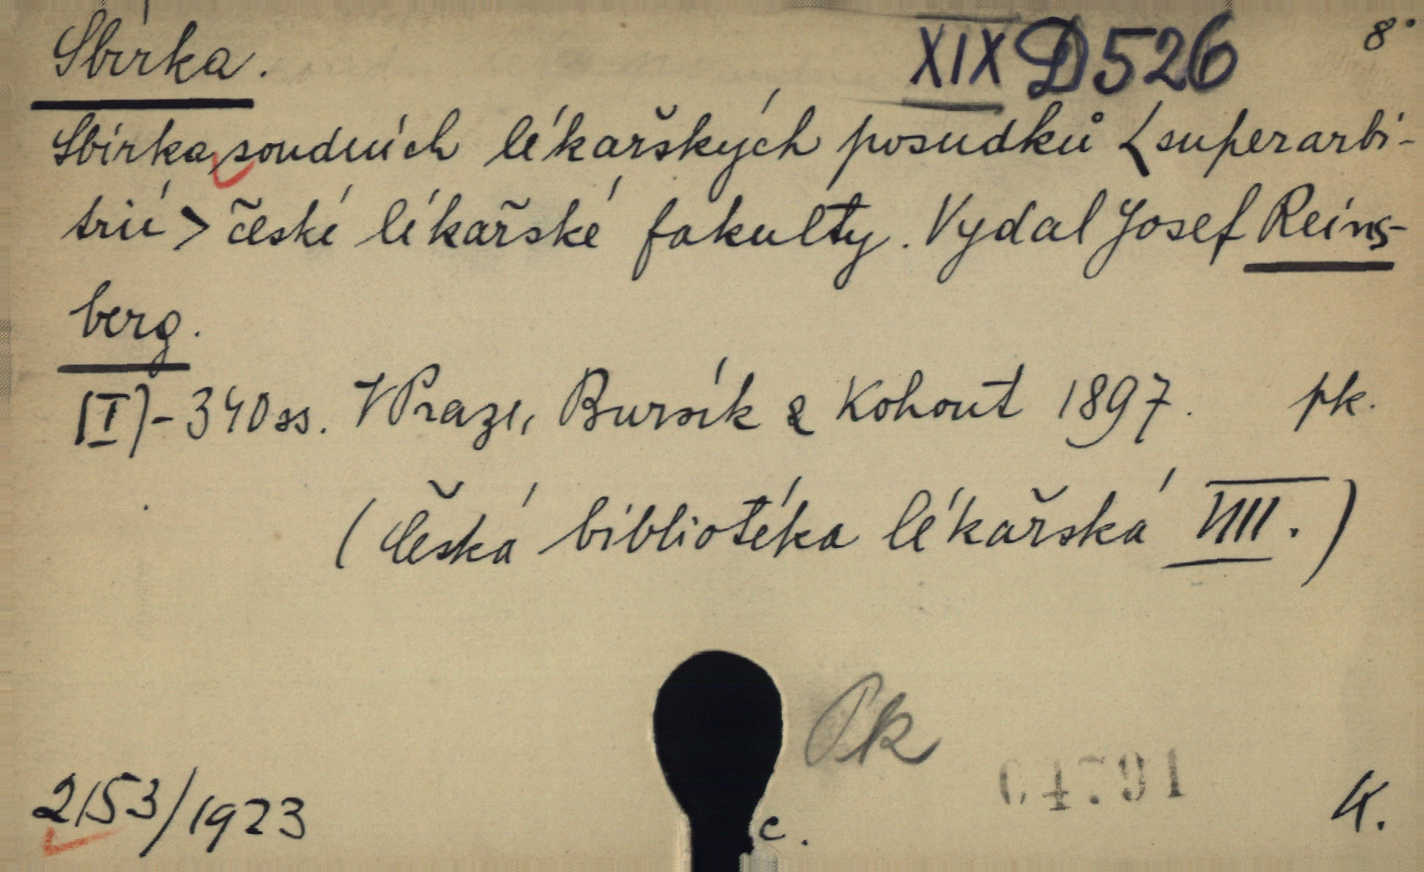 Sbírka. XIX D 526 8°
Sbírka soudních lékařských posudků <superarbi-
trií> české lékařské fakulty. Vydal Josef Reins-
berg.
[I]-340 ss. V Praze, Bursík & Kohout 1897. pk.
(Česká bibliotéka lékařská VIII.)
Pk
04791
2153/1923 c. K.